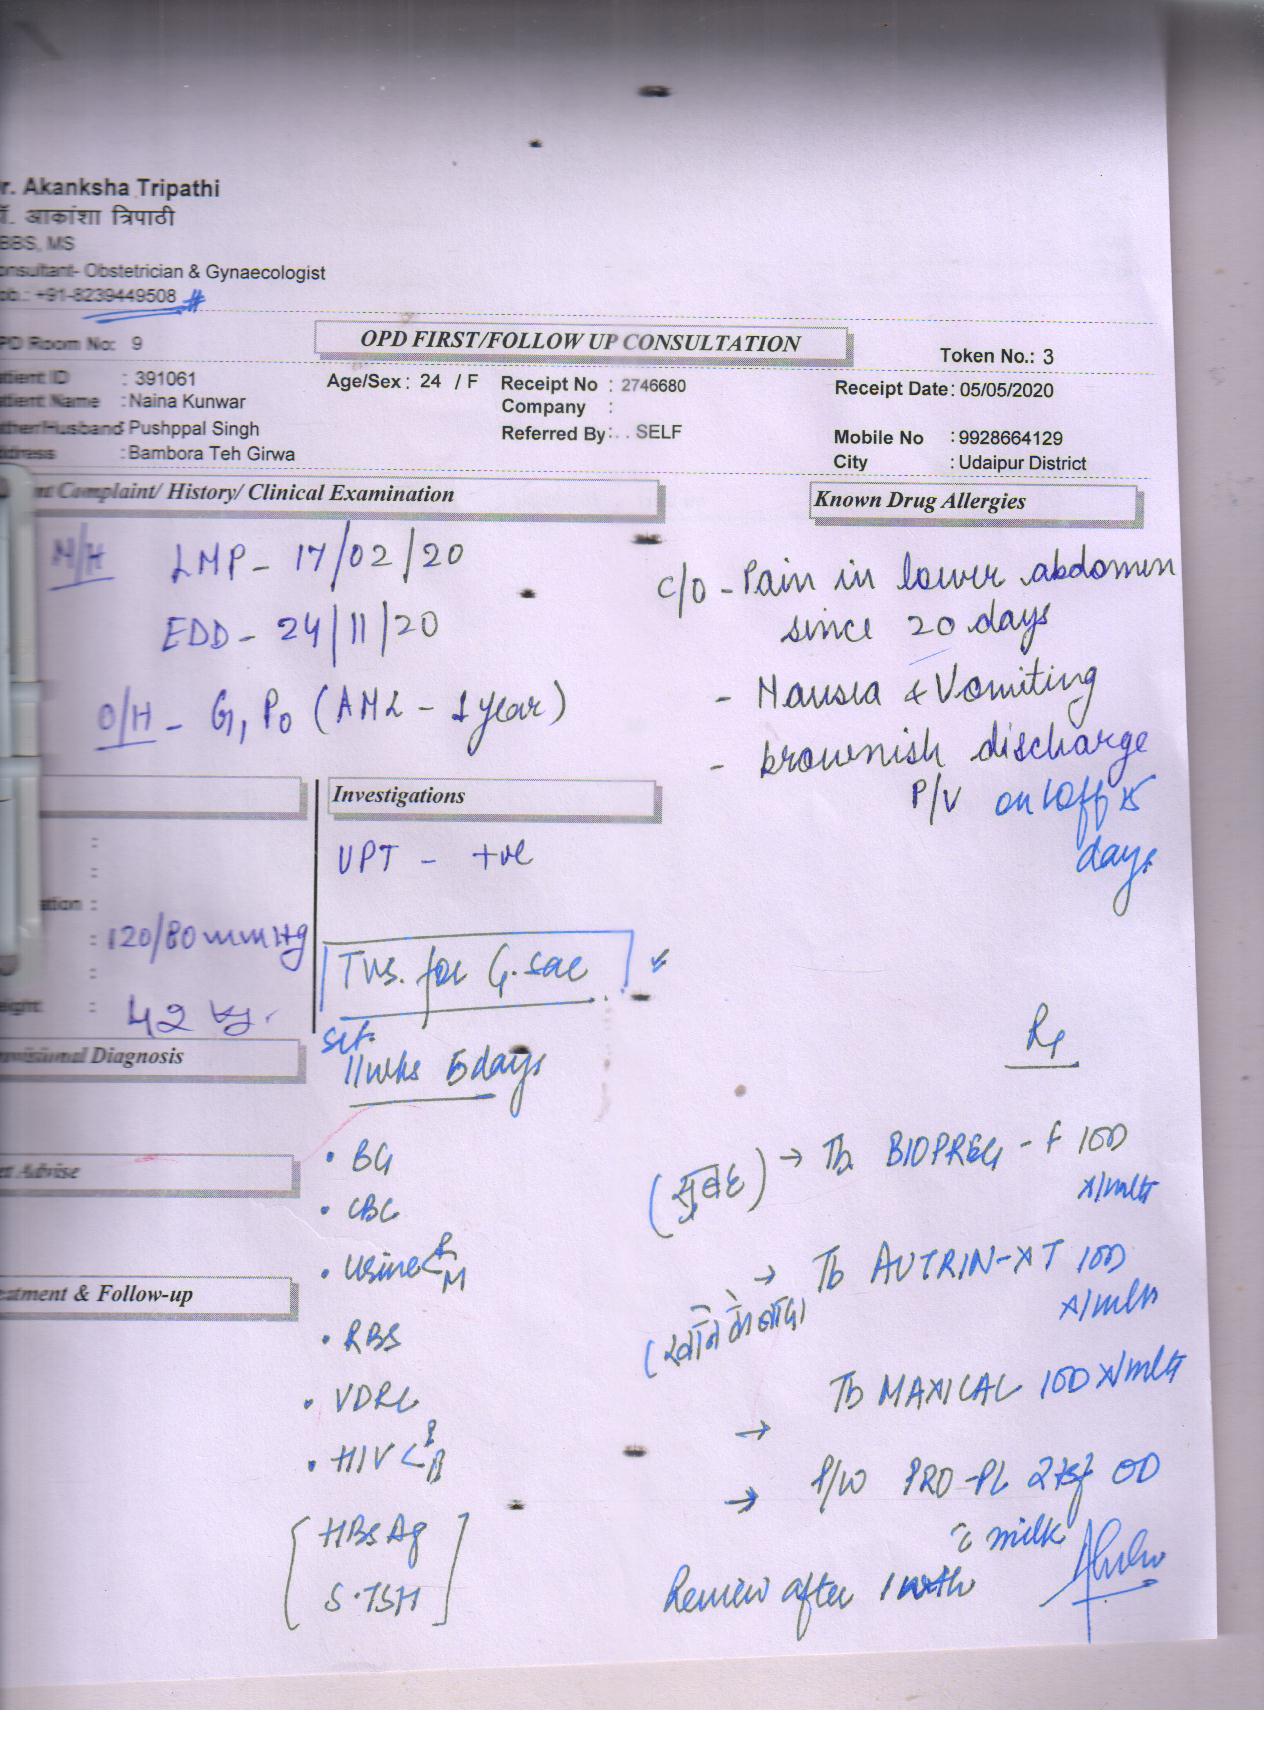 r. Akanksha Tripathi
ॉ. आकांशा त्रिपाठी
BBS, MS
onsultant- Obstetrician & Gynaecologist
ob.: +91-8239449508
PD Room No: 9
OPD FIRST/FOLLOW UP CONSULTATION
Token No.: 3
atient ID : 391061
Age/Sex : 24 / F
Receipt No : 2746680
Receipt Date: 05/05/2020
atient Name : Naina Kunwar
Company :
ther/Husband: Pushppal Singh
Referred By: . . SELF
Mobile No : 9928664129
ddress : Bambora Teh Girwa
City : Udaipur District
nt Complaint/ History/ Clinical Examination
Known Drug Allergies
M/H LMP - 17/02/20
EDD - 24/11/20
O/H - G1 P0 (AML - 1 year)
c/o - Pain in lower abdomen
since 20 days
- Nausea & Vomiting
- brownish discharge
P/V on & off
days
Investigations
UPT - +ve
ation :
: 120/80 mmHg
eight : 42 kg.
TVS. for G. sac
11wks 5days
ovisional Diagnosis
et Advise
eatment & Follow-up
• BG
• CBC
• Urine < R M
• RBS
• VDRL
• HIV <
HBsAg
S.TSH
Rx
(सुबह) → Tb BIOPREG-F 1OD
x 1mth
→ Tb AUTRIN-XT 1OD
x 1mth
(खाने के बाद)
→ Tb MAXICAL 1OD x 1mth
→ P/W PRO-PL 2tsf OD
c̄ milk
Review after 1 mth